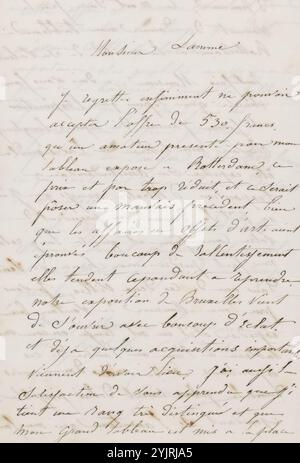 Monsieur Lamme
Je regrette infiniment ne pouvoir
accepter l'offre de 530 francs
qu'un amateur present pour mon
tableau exposé à Rotterdam, ce
prix est par trop réduit, et ce serait
poser un mauvais précédent bien
que les affaires en objets d'art aient
éprouvé beaucoup de rallentissement
elles tendent cependant à reprendre
notre exposition de Bruxelles vient
de s'ouvrir avec beaucoup d'éclat,
et déja quelques acquisitions importan
viennent d'avoir lieu. J'ai aussi la
satisfaction de vous apprendre que j'
tient un rang très distingué et que
mon grand tableau est mis à la place
alamy
Image ID: 2YJRJA5
www.alamy.com